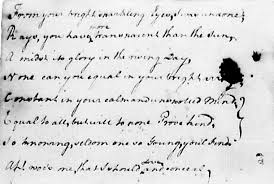 From your bright sparkling Eyes, I was undone;
Rays, you have more transparent than the sun,
A midst its glory in the rising Day,
None can you equal in your bright
Constant in your calm and unspotted Mind;
Equal to all, but will to none Prove kind,
So knowing, seldom one so Young, you'l Find
Ah! woe's me that I should Love and conceal